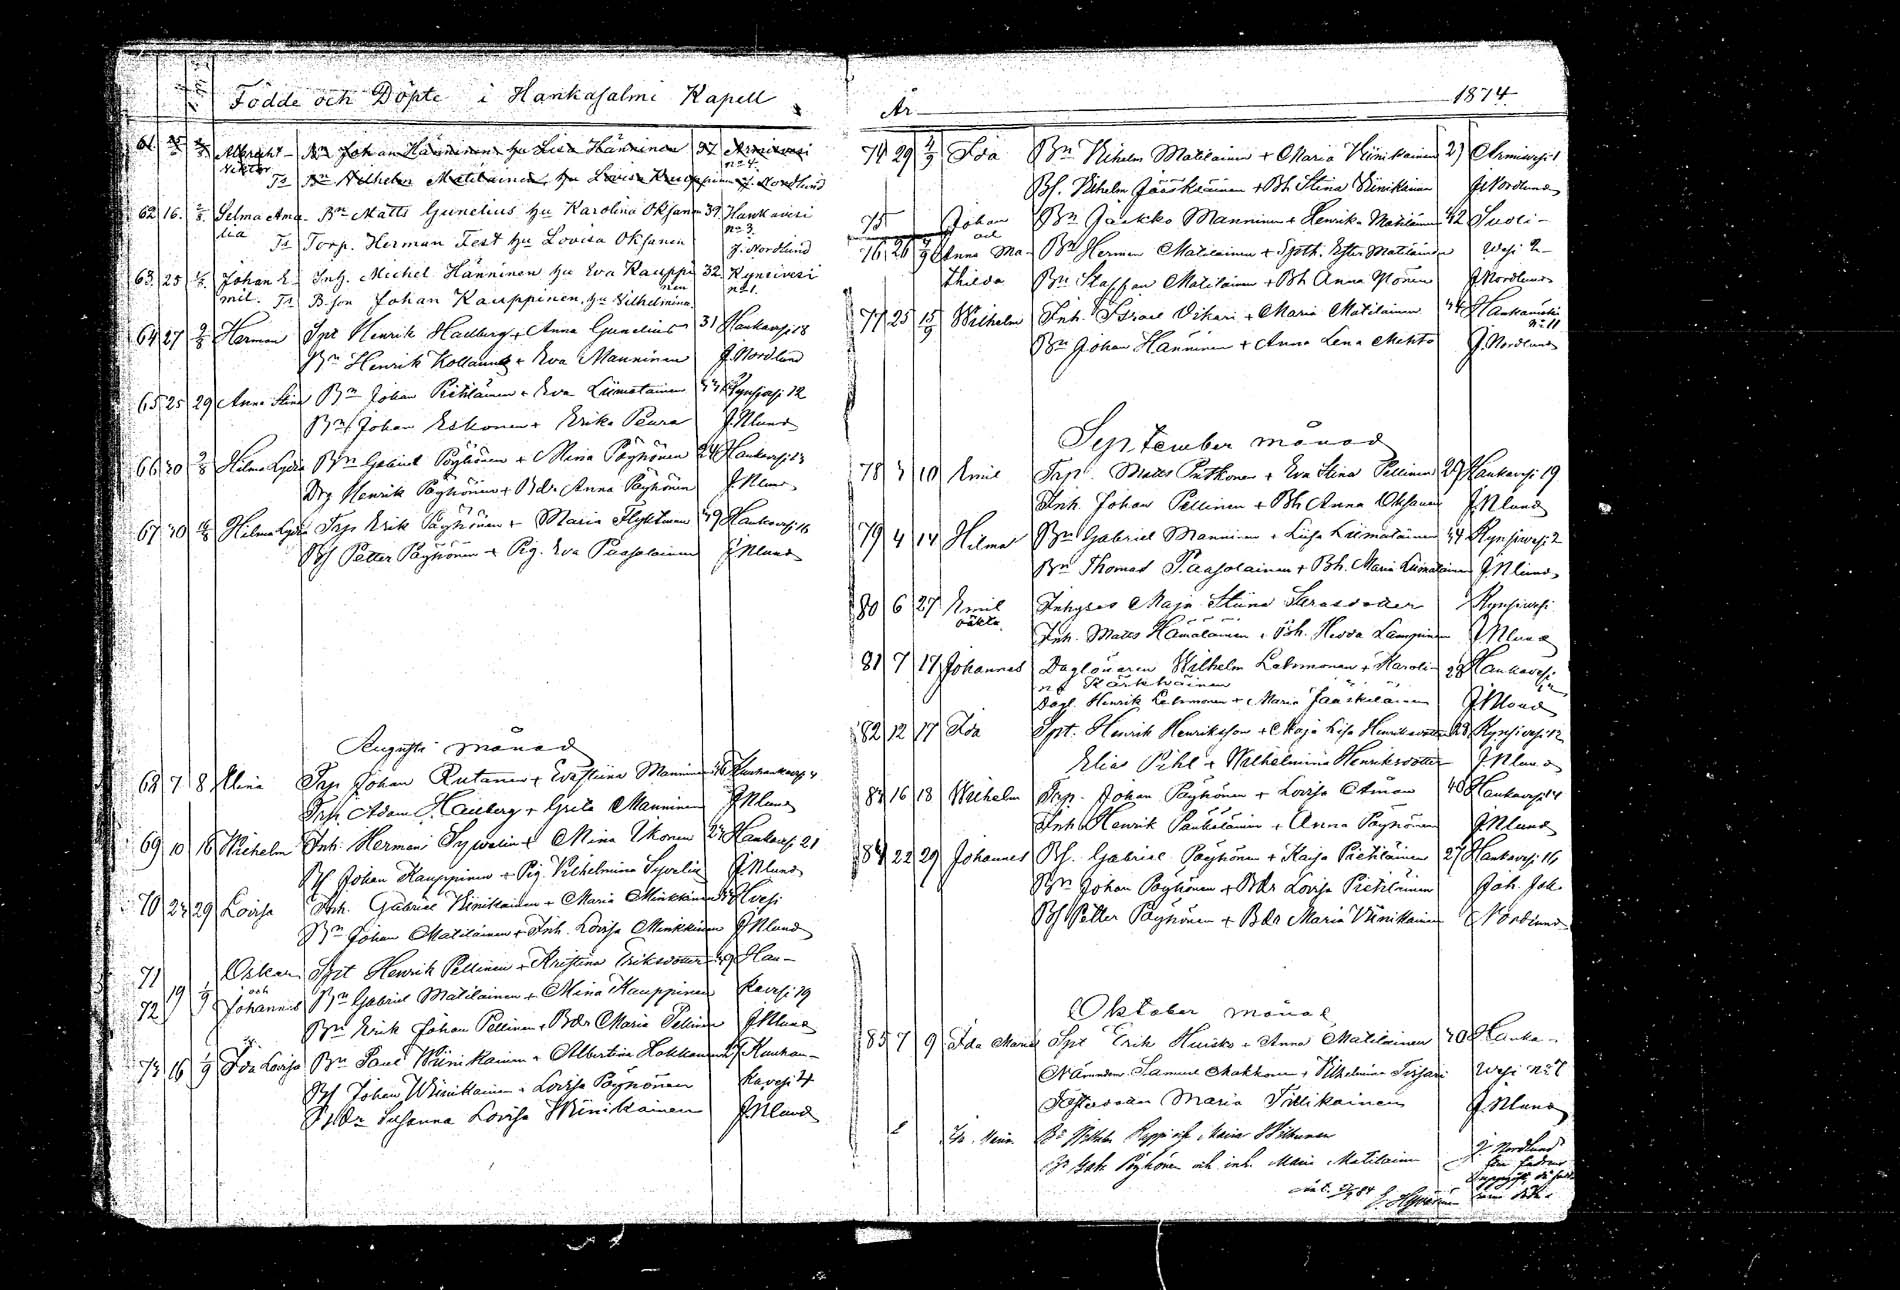 Födde och Döpte i Hankasalmi Kapell
61. Albrecht Viktor Bn Johan Hänninen hu Lisa Hänninen 37 Armisvesi no 4.
Ts Bn Wilhelm Matilainen, hu Lovisa Kauppinen J. Nordlund
62 16. 2/8. Selma Amalia Bn Matts Gunelius hu Karolina Oksanen 39. Hankavesi no 3.
Ts Torp. Herman Fest hu Lovisa Oksanen J. Nordlund
63. 25 Johan Emil. Inh. Michel Hänninen hu Eva Kauppinen 32. Kynsivesi no 1.
Ts B.son Johan Kauppinen, hu Vilhelmina
64 27 2/8 Herman Spt Henrik Hallberg + Anna Gunelius 31 Hankavesi 8
Bn Henrik + Eva Manninen J. Nordlund
65 25 29 Anna Stina Bn Johan Pietiläinen + Eva Liimatainen Kynsivesi 12
Bn Johan Eskonen + Erika Peura J. Nlund
66 30 2/8 Hilma Lydia Bn Gabriel Pöyhönen + Mina Pöyhönen 24 Hankavesi 13
Drg Henrik Pöyhönen + Bdr Anna Pöyhönen J. Nlund
67 30 Hilma Lydia Trp Erik Pöyhönen + Maria Flyktman 39 Hankavesi 16
Bs Petter Pöyhönen + Pig. Eva Paasolainen J. Nlund
Augusti månad
68 7 8 Elina Trp Johan Rutanen + Eva Stiina Manninen Kuuhankavesi 4
Trp Adam Hallberg + Greta Manninen J. Nlund
69 10 16 Wilhelm Inh. Herman Sywelin + Mina Ikonen Hankavesi 21
Bs Johan Kauppinen + Pig. Vilhelmina Syvelin J. Nlund
70 23 29 Lovisa Inh. Gabriel Wiinikainen + Maria Minkkinen Hvesi
Bn Johan Matilainen + Inh. Lovisa Minkkinen J. Nlund
71 Oskar Spt Henrik Pellinen + Kristina Eriksdotter 39 Han-
72 19 1/9 och Johannes Bn Gabriel Matilainen + Mina Kauppinen kavesi 19
Bn Erik Johan Pellinen + Bdr Maria Pellinen J. Nlund
73 16 1/9 Ida Lovisa Bn Paul Wiinikainen + Albertina Hokkanen 27 Kuuhan-
Bs Johan Wiinikainen + Lovisa Pöyhönen kavesi 4
Susanna Lovisa Wiinikainen J. Nlund
År 1874
74 29 2/9 Ida Bn Vilhelm Matilainen + Maria Wiinikainen 27 Armisvesi 1
Bs. Vilhelm Jääskeläinen + Bh Stina Wiinikainen J. Nordlund
75 Johan Bn Jaakko Manninen + Henrika Matilainen 42 Suoli-
76 26 och Anna Ma- Bn Herman Matilainen + Ester Matilainen wesi 2
thilda Bn Staffan Matilainen + Bh Anna Ypönen J. Nordlund
77 25 15/9 Wilhelm Inh. Israel Oikari + Maria Matilainen 34 no 11
Bn Johan Hänninen + Anna Lena Mehto J. Nordlund
September månad
78 3 10 Emil Trp. Matts Putkonen + Eva Stina Pellinen 29 Hankavesi 19
Inh. Johan Pellinen + Bh Anna Oksanen J. Nlund
79 4 14 Hilma Bn Gabriel Manninen + Liisa Liimatainen 34 Kynsiwesi 2
Bn Thomas Paasolainen + Bh. Maria Liimatainen J. Nlund
80 6 27 Emil oäkta. Inhyses Maja Stiina Kynsiwesi
Inh. Matts Hämäläinen + Bh. Hedda Lamppinen J. Nlund
81 7 17 Johannes Daglönaren Wilhelm Lehmonen + Karoli- 28 Hankavesi
na Kärkkäinen
Dagl. Henrik Lehmonen + Maria Jääskeläinen J. Nlund
82 12 17 Ida Spt. Henrik Henriksson + Maja Lisa Henriksdotter 28 Kynsivesi 12
Elias Pihl + Wilhelmina Henriksdotter J. Nlund
83 16 18 Wilhelm Trp. Johan Pöyhönen + Lovisa Åman 40 Hankavesi 14
Inh Henrik + Anna Pöyhönen J. Nlund
84 22 29 Johannes Bs. Gabriel Pöyhönen + Kaisa Pietiläinen 27 Hankavesi 16
Bn Johan Pöyhönen + Bdr Lovisa Pietiläinen Joh. Joh.
Bs Petter Pöyhönen + Bdr Maria Wiinikainen Nordlund
Oktober månad
85 7 9 Ida Maria Spt Erik Husko + Anna Matilainen 30 Hanka-
Nämndem. Samuel Makkonen + Vilhelmina wesi no 7
Maria Tillikainen J. Nlund
Bn och Maria
Gab. Pöyhönen och inh. Maria Matilainen J. Nordlund